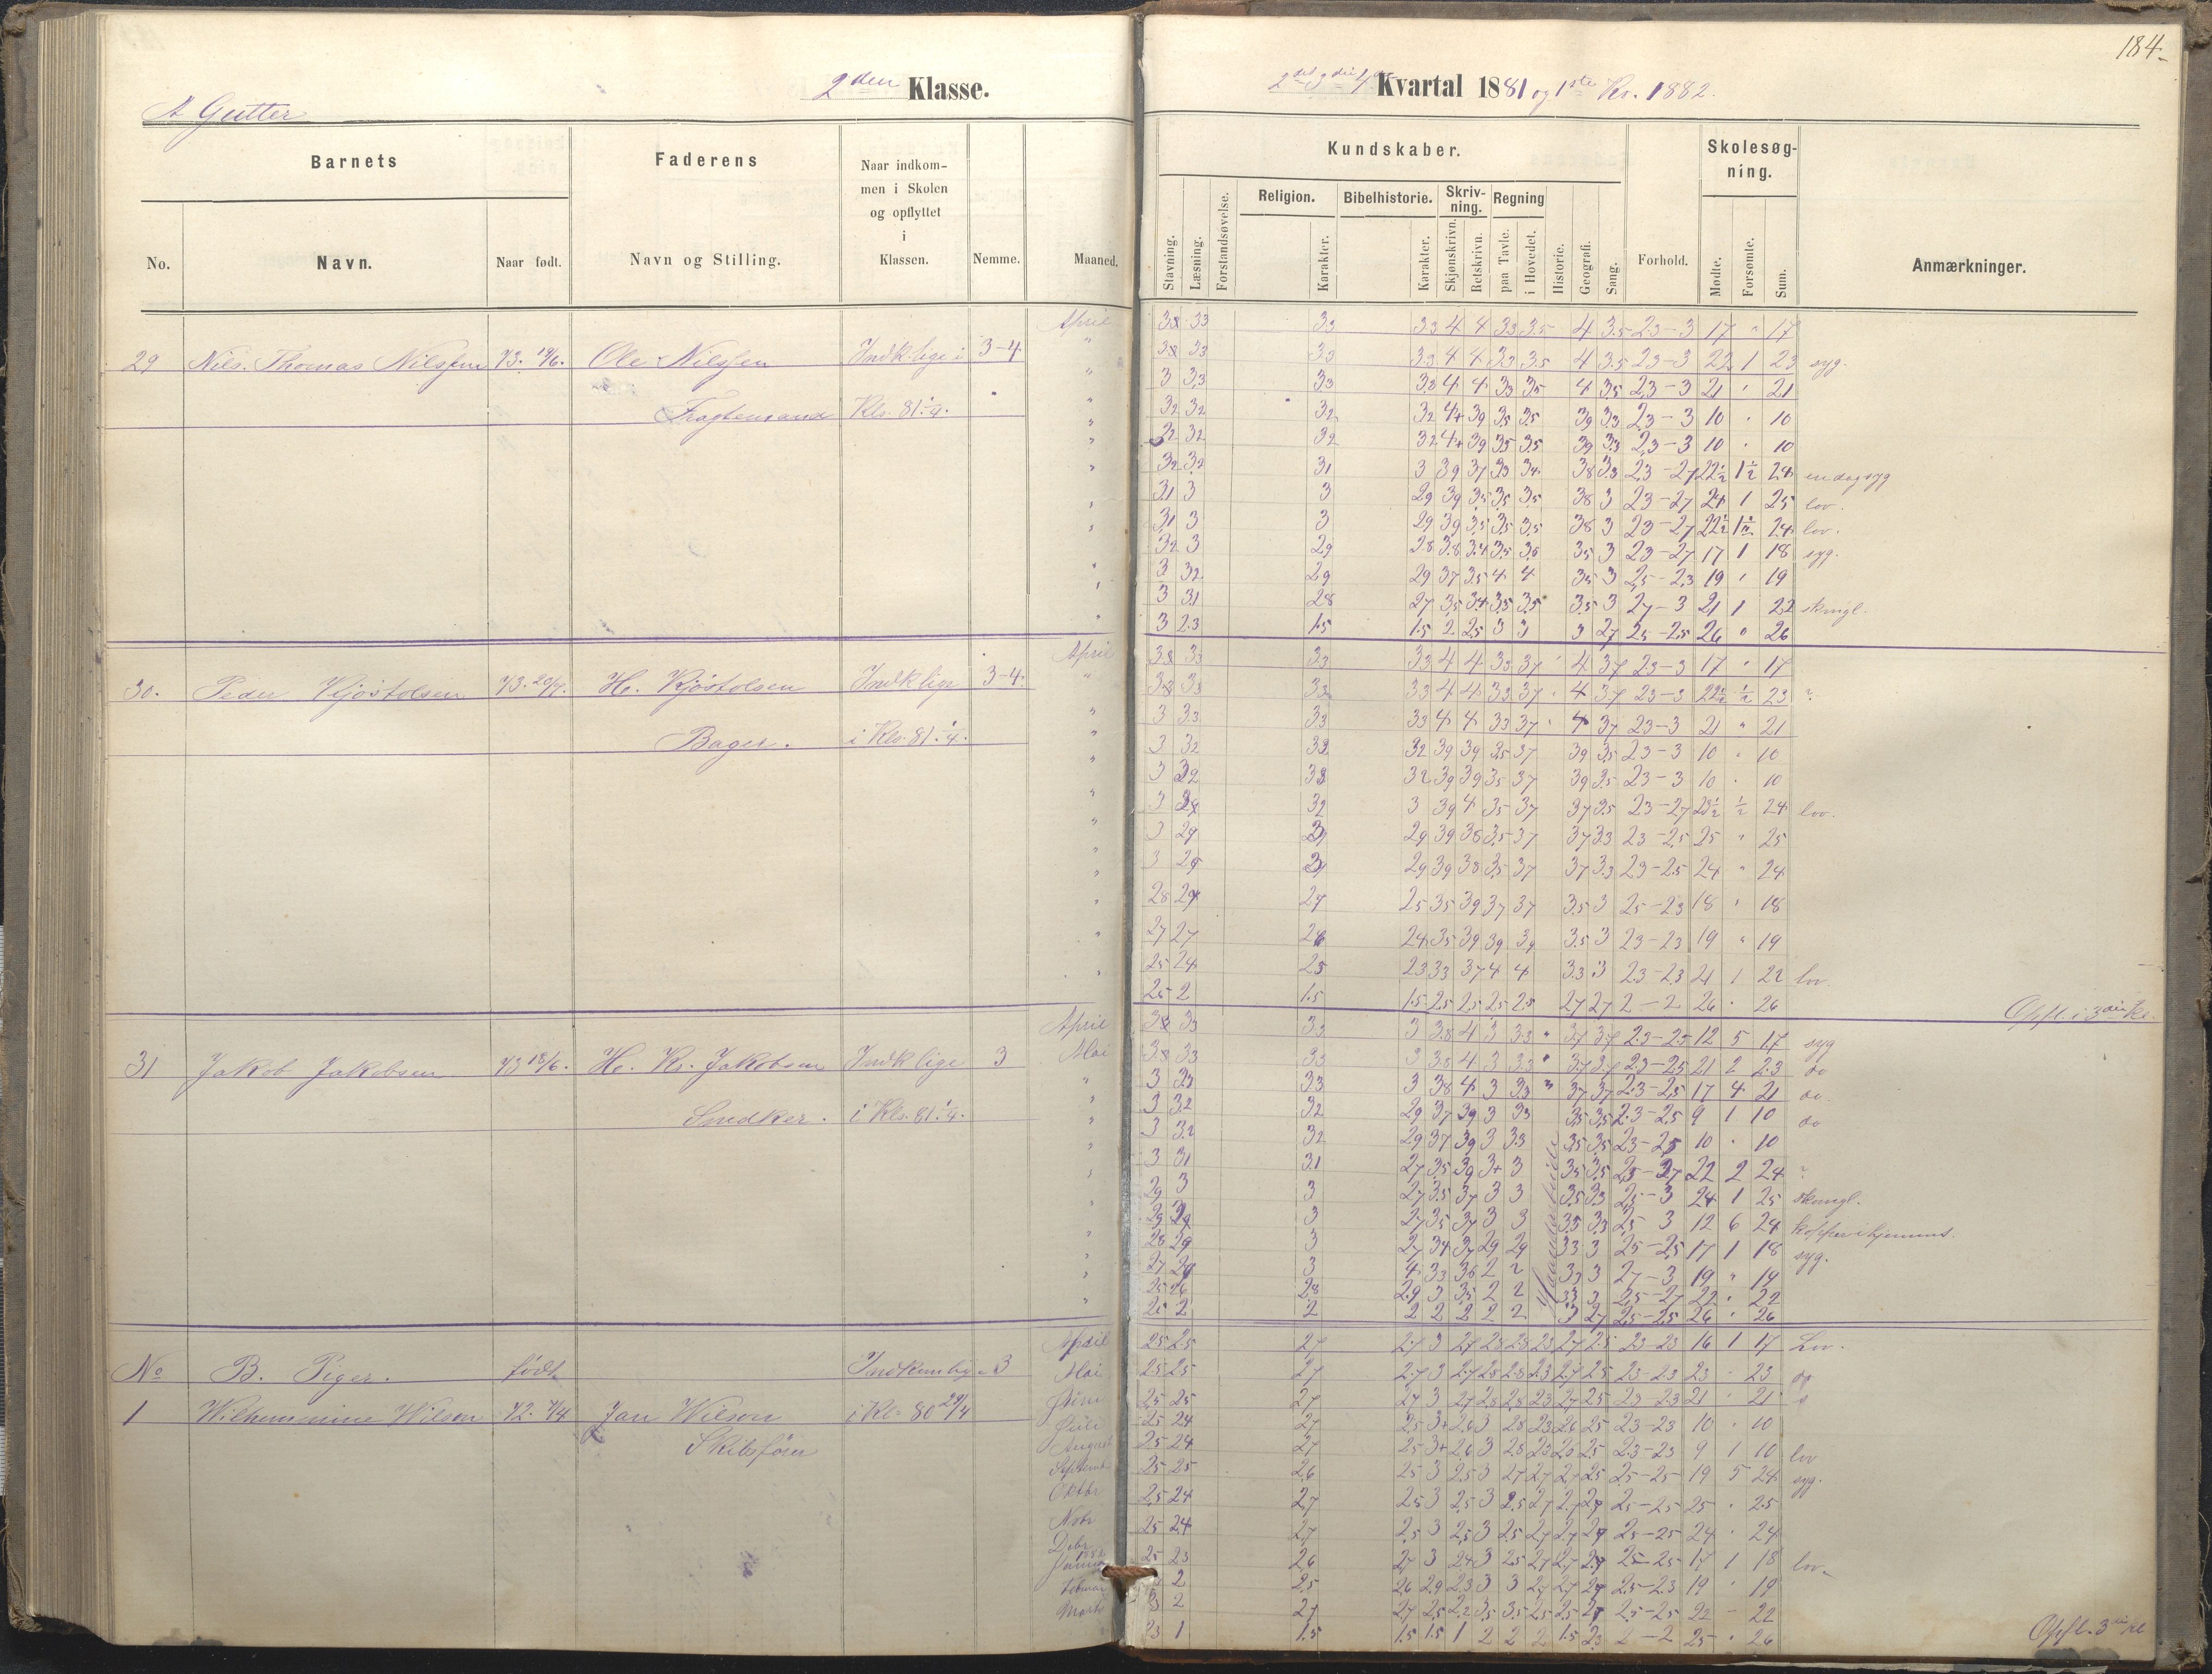 184.
2den Klasse.
A Gutter
Barnets
Faderens
Naar indkom-
men i Skolen
og opflyttet
i
Klassen.
No.
Navn.
Naar født.
Navn og Stilling.
Nemme.
Maaned.
29 Nils. Thomas Nilssen 73. 19/6. Ole Nilssen Indk lige i 3-4 April
Fragtemand Kls. 81. 1/4.
30. Peder Kjöstolsen 73. 20/7. H. Kjöstolsen Indk lige 3-4. April
Bager. i Kls. 81. 1/4.
31 Jakob Jakobsen 73 18/6. H. Kr. Jakobsen Indk lige 3 April
Mai
Snedker. i Kls. 81. 1/4.
No B. Piger. födt 3 April
Mai
1 Wilhemmine Wilson 72. 7/4 Jan Wilson i Kl. 80 29/4 Juni
Juli
August
Septemb
Oktbr
Novbr
Debr
1882
Januar
Februar
Marts
Kvartal 1881 og 1ste Kv. 1882.
Kundskaber.
Skolesøg-
ning.
Religion.
Bibelhistorie.
Skriv-
ning.
Regning
Stavning.
Læsning.
Forstandsøvelse.
Karakter.
Karakter.
Skjønskrivn.
Retskrivn.
paa Tavle.
i Hovedet.
Historie.
Geografi.
Sang.
Forhold.
Mødte.
Forsømte.
Sum.
Anmærkninger.
33 33 4 4 33 35 4 35 23-3 17 " 17
33 33 4 4 33 35 4 35 23-3 22 1 23 syg.
3 33 33 4 4 33 35 4 35 23-3 21 " 21
32 32 32 32 39 35 35 39 33 23-3 10 " 10
32 32 32 32 39 35 35 39 33 23-3 10 " 10
32 32 31 3 39 37 33 34 38 33 23-27 22½ 1½ 24 en dag syg
31 3 3 29 39 35 35 35 38 3 23-27 24 1 25 lov.
31 3 3 29 39 35 35 35 38 3 23-27 22½ 1½ 24 lov.
32 3 29 28 38 34 35 36 35 3 23-27 17 1 18 syg.
3 32 29 29 37 35 4 4 35 3 25-23 19 " 19
3 31 28 27 35 34 35 35 35 3 27-3 21 1 22 skingl.
3 23 15 15 2 25 3 3 3 27 25-25 26 " 26
33 33 33 4 4 33 37 4 37 23-3 17 " 17
33 33 33 4 4 33 37 4 37 23-3 22½ ½ 23 ?
3 33 33 33 4 4 33 37 4 37 23-3 21 " 21
3 32 32 39 39 35 37 39 35 23-3 10 " 10
3 32 32 39 39 35 37 39 35 23-3 10 " 10
3 32 3 39 4 35 37 37 35 23-27 23½ ½ 24 lov.
3 29 29 39 38 35 37 37 33 23-25 25 " 25
3 29 39 38 35 37 37 33 23-25 24 " 24
28 27 25 35 39 37 37 35 3 25-23 18 " 18
27 27 24 35 39 39 39 35 3 23-23 19 " 19
25 24 25 23 33 37 4 4 33 3 23-23 21 1 22 lov
25 2 15 15 25 25 25 25 27 27 2-2 26 " 26 Opfl. i 3die Kl.
33 33 3 38 4 3 33 " 37 37 23-25 12 5 17 syg
33 33 3 38 4 3 33 " 37 37 23-25 21 2 23 do
3 33 33 3 38 4 3 33 " 37 37 23-25 17 4 21 do.
3 32 32 29 37 39 3 33 35 35 23-25 9 1 10 do
3 32 32 29 37 39 3 33 35 35 23-25 10 " 10
3 31 31 27 35 39 3+ 3 35 35 22 2 24 ?
29 3 3 27 35 37 3 3 35 33 25-3 24 1 25 skingl.
29 3 27 35 37 3 3 35 33 25 3 12 6 24 kopper i hjemmet.
28 29 3 27 34 37 29 29 33 3 25-25 17 1 18 syg.
27 3 33 36 2 2 33 3 27-3 19 " 19
25 26 28 29 3 35 2 2 33 3 25-27 22 " 22
2 2 2 2 2 2 2 3 27 25-25 26 " 26
25 25 27 27 3 27 28 28 23 27 25 23-23 16 1 17 Lov.
25 25 27 27 3 27 28 28 23 27 25 23-23 23 " 23 do
25 25 27 27 3 27 28 28 23 27 25 23-23 21 " 21
25 24 27 25 3+ 26 3 28 23 26 25 23-23 10 " 10
25 24 27 25 3+ 26 3 28 23 26 25 23-23 9 1 10 lov
25 25 26 25 3 25 3 27 27 27 25 25-25 19 5 24 syg.
25 24 27 25 3 25 3 25 27 27 27 25-25 25 " 25
25 24 27 25 3 25 3 25 27 27 27 25-25 24 " 24
25 23 26 27 3 24 3 25 27 27 27 25-25 17 1 18 lov.
2 25 26 29 23 3 3 27 27 27 25-23 19 " 19
2 27 27 25 22 35 35 25 25 27 25-25 22 - 22
23 1 15 15 15 1 2 2 2 15 23 2-2 25 " 26 Opfl. 3die Kl